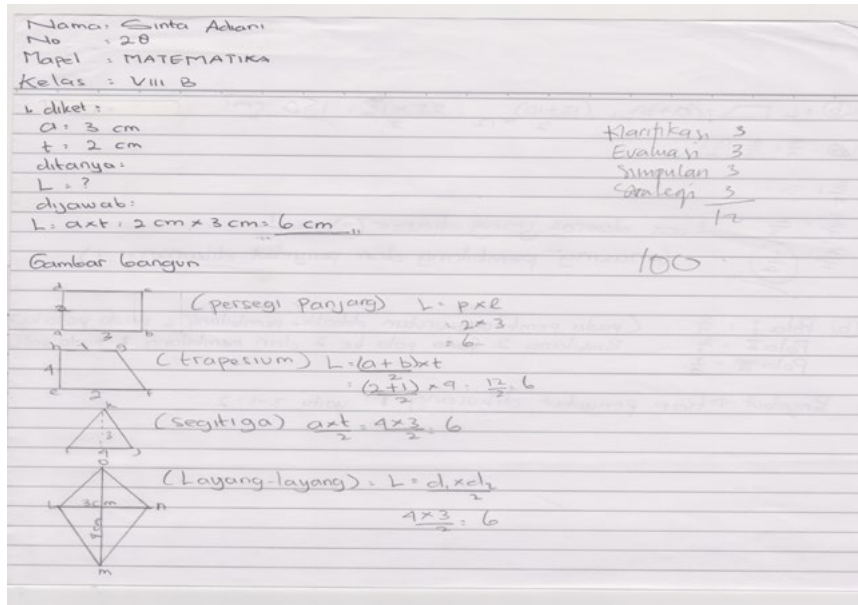 Nama : Sinta Adkani
No : 28
Mapel : MATEMATIKA
Kelas : VIII B
1. diket :
a : 3 cm
t : 2 cm
ditanya :
L : ?
dijawab :
L : a x t : 2 cm x 3 cm = 6 cm
Klarifikasi 3
Evaluasi 3
Simpulan 3
Strategi 3
12
100
Gambar bangun
d c
2
a 3 b
(persegi Panjang) L = p x l
= 2 x 3
= 6
h 1 g
4
e 2 f
(trapesium) L = (a + b) x t / 2
= (2 + 1) x 4 / 2 = 12/2 = 6
k
3
4 J
(segitiga) a x t / 2 = 4 x 3 / 2 = 6
O
L 3 cm n
m
(Layang-layang) = L = d1 x d2 / 2
4 x 3 / 2 = 6